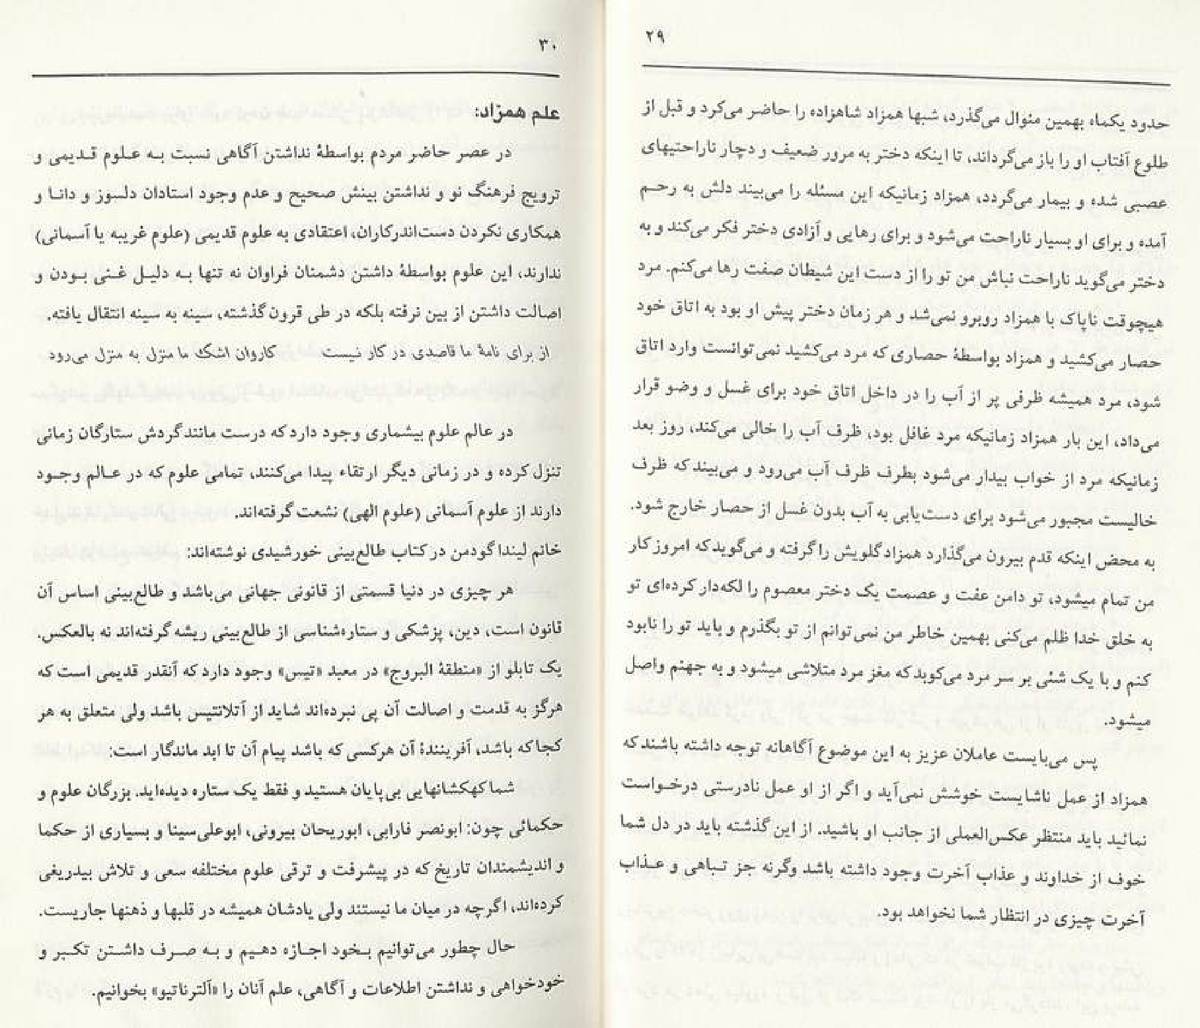 ۲۹
حدود یکماه بهمین منوال می‌گذرد، شبها همزاد شاهزاده را حاضر می‌کرد و قبل از
طلوع آفتاب او را باز می‌گرداند، تا اینکه دختر به مرور ضعیف و دچار ناراحتیهای
عصبی شده و بیمار می‌گردد، همزاد زمانیکه این مسئله را می‌بیند دلش به رحم
آمده و برای او بسیار ناراحت می‌شود و برای رهایی و آزادی دختر فکر می‌کند و به
دختر می‌گوید ناراحت نباش من تو را از دست این شیطان صفت رها می‌کنم. مرد
هیچوقت ناپاک با همزاد روبرو نمی‌شد و هر زمان دختر پیش او بود به اتاق خود
حصار می‌کشید و همزاد بواسطهٔ حصاری که مرد می‌کشید نمی‌توانست وارد اتاق
شود، مرد همیشه ظرفی پر از آب را در داخل اتاق خود برای غسل و وضو قرار
می‌داد، این بار همزاد زمانیکه مرد غافل بود، ظرف آب را خالی می‌کند، روز بعد
زمانیکه مرد از خواب بیدار می‌شود بطرف ظرف آب می‌رود و می‌بیند که ظرف
خالیست مجبور می‌شود برای دست‌یابی به آب بدون غسل از حصار خارج شود.
به محض اینکه قدم بیرون می‌گذارد همزاد گلویش را گرفته و می‌گوید که امروز کار
من تمام میشود، تو دامن عفت و عصمت یک دختر معصوم را لکه‌دار کرده‌ای تو
به خلق خدا ظلم می‌کنی بهمین خاطر من نمی‌توانم از تو بگذرم و باید تو را نابود
کنم و با یک شئی بر سر مرد می‌کوبد که مغز مرد متلاشی میشود و به جهنم واصل
میشود.
پس می‌بایست عاملان عزیز به این موضوع آگاهانه توجه داشته باشند که
همزاد از عمل ناشایست خوشش نمی‌آید و اگر از او عمل نادرستی درخواست
نمائید باید منتظر عکس‌العملی از جانب او باشید. از این گذشته باید در دل شما
خوف از خداوند و عذاب آخرت وجود داشته باشد وگرنه جز تباهی و عذاب
آخرت چیزی در انتظار شما نخواهد بود.
۳۰
علم همزاد:
در عصر حاضر مردم بواسطهٔ نداشتن آگاهی نسبت به علوم قدیمی و
ترویج فرهنگ نو و نداشتن بینش صحیح و عدم وجود استادان دلسوز و دانا و
همکاری نکردن دست‌اندرکاران، اعتقادی به علوم قدیمی (علوم غریبه یا آسمانی)
ندارند، این علوم بواسطهٔ داشتن دشمنان فراوان نه تنها به دلیل غنی بودن و
اصالت داشتن از بین نرفته بلکه در طی قرون گذشته، سینه به سینه انتقال یافته.
از برای نامهٔ ما قاصدی در کار نیست کاروان اشک ما منزل به منزل می‌رود
در عالم علوم بیشماری وجود دارد که درست مانند گردش ستارگان زمانی
تنزل کرده و در زمانی دیگر ارتقاء پیدا می‌کنند، تمامی علوم که در عالم وجود
دارند از علوم آسمانی (علوم الهی) نشعت گرفته‌اند.
خانم لیندا گودمن در کتاب طالع‌بینی خورشیدی نوشته‌اند:
هر چیزی در دنیا قسمتی از قانونی جهانی می‌باشد و طالع‌بینی اساس آن
قانون است، دین، پزشکی و ستاره‌شناسی از طالع‌بینی ریشه گرفته‌اند نه بالعکس.
یک تابلو از «منطقة البروج» در معبد «تیس» وجود دارد که آنقدر قدیمی است که
هرگز به قدمت و اصالت آن پی نبرده‌اند شاید از آتلانتیس باشد ولی متعلق به هر
کجا که باشد، آفرینندهٔ آن هرکسی که باشد پیام آن تا ابد ماندگار است:
شما کهکشانهایی بی‌پایان هستید و فقط یک ستاره دیده‌اید. بزرگان علوم و
حکمائی چون: ابونصر فارابی، ابوریحان بیرونی، ابوعلی‌سینا و بسیاری از حکما
و اندیشمندان تاریخ که در پیشرفت و ترقی علوم مختلفه سعی و تلاش بیدریغی
کرده‌اند، اگرچه در میان ما نیستند ولی یادشان همیشه در قلبها و ذهنها جاریست.
حال چطور می‌توانیم بخود اجازه دهیم و به صرف داشتن تکبر و
خودخواهی و نداشتن اطلاعات و آگاهی، علم آنان را «آلترناتیو» بخوانیم.